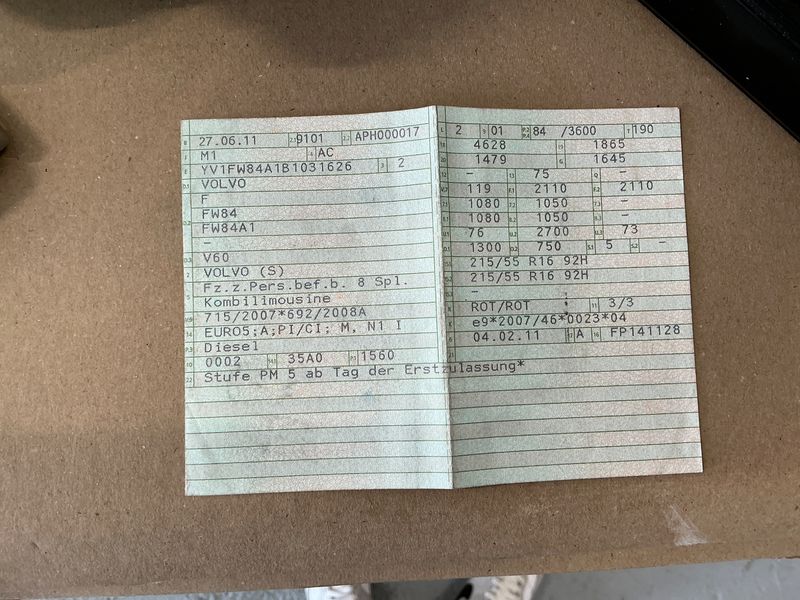 B 27.06.11 2.1 9101 2.2 APH000017
J M1 4 AC
E YV1FW84A1B1031626 3 2
D.1 VOLVO
F
D.2 FW84
FW84A1
-
D.3 V60
2 VOLVO (S)
5 Fz.z.Pers.bef.b. 8 Spl.
Kombilimousine
V.9 715/2007*692/2008A
14 EURO5;A;PI/CI; M, N1 I
P.3 Diesel
10 0002 14.1 35A0 P.1 1560
22 Stufe PM 5 ab Tag der Erstzulassung*
L 2 9 01 P.2 P.4 84 /3600 T 190
18 4628 19 1865
20 1479 G 1645
12 - 13 75 Q -
V.7 119 F.1 2110 F.2 2110
7.1 1080 7.2 1050 7.3 -
8.1 1080 8.2 1050 8.3 -
U.1 76 U.2 2700 U.3 73
O.1 1300 O.2 750 S.1 5 S.2 -
215/55 R16 92H
215/55 R16 92H
-
R ROT/ROT 11 3/3
K e9*2007/46*0023*04
6 04.02.11 17 A 16 FP141128
21